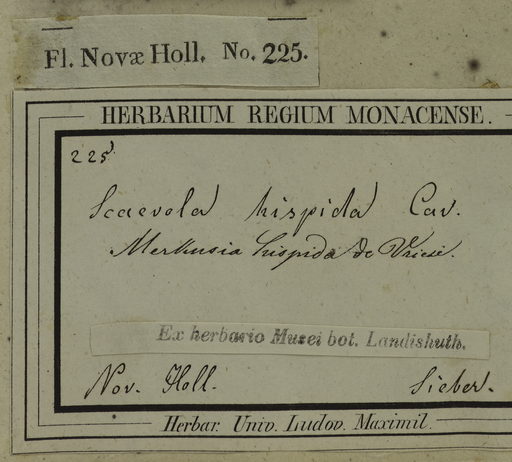 Fl. Novæ Holl. No. 225.
HERBARIUM REGIUM MONACENSE.
225
Scaevola hispida Cav.
Merkusia hispida de Vriese.
Ex herbario Musei bot. Landishuth.
Nov. Holl. Sieber.
Herbar. Univ. Ludov. Maximil.